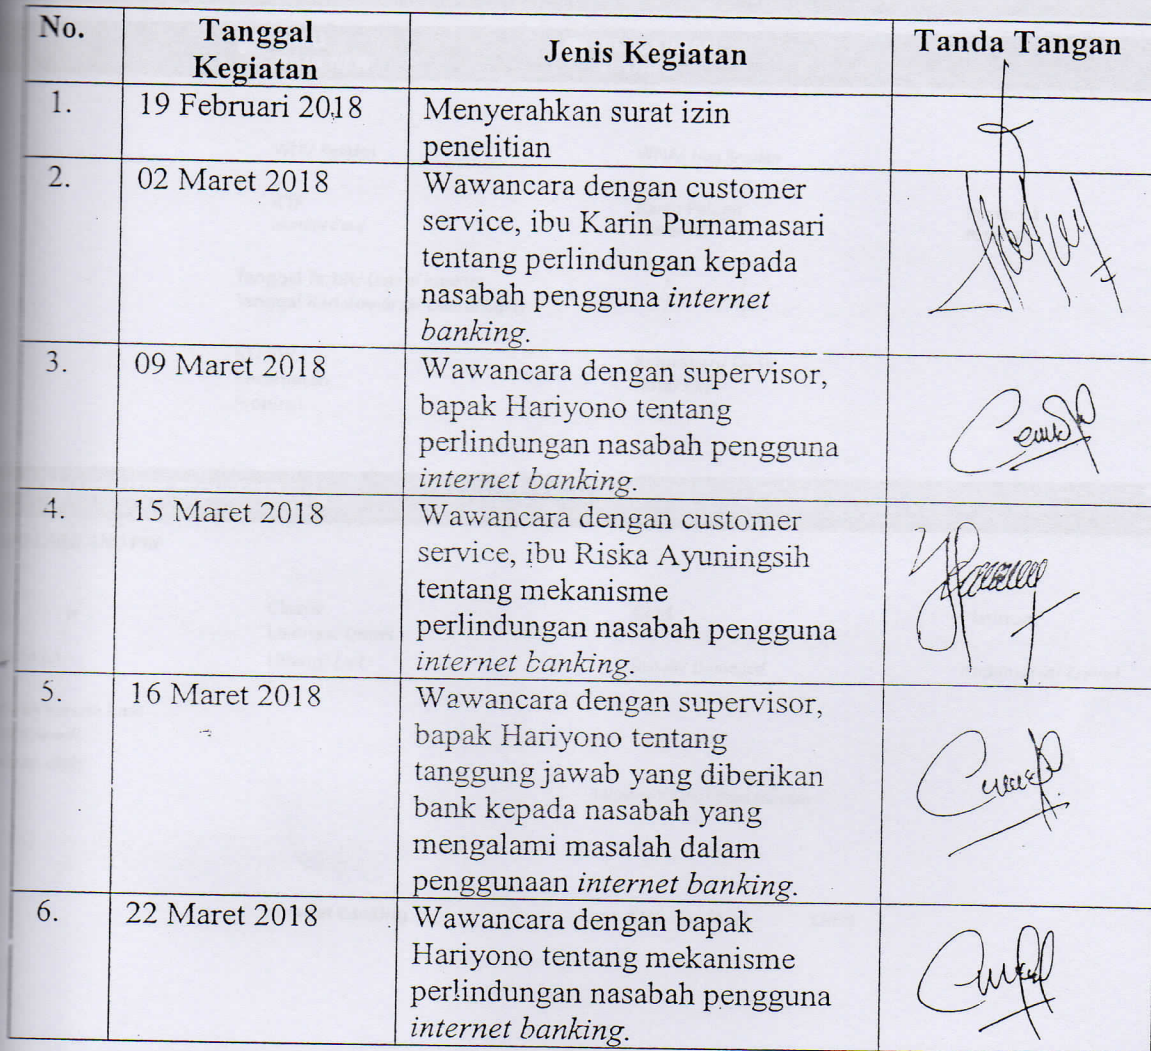 No.
Tanggal
Kegiatan
Jenis Kegiatan
Tanda Tangan
1.
19 Februari 2018
Menyerahkan surat izin
penelitian
2.
02 Maret 2018
Wawancara dengan customer
service, ibu Karin Purnamasari
tentang perlindungan kepada
nasabah pengguna internet
banking.
3.
09 Maret 2018
Wawancara dengan supervisor,
bapak Hariyono tentang
perlindungan nasabah pengguna
internet banking.
4.
15 Maret 2018
Wawancara dengan customer
service, ibu Riska Ayuningsih
tentang mekanisme
perlindungan nasabah pengguna
internet banking.
5.
16 Maret 2018
Wawancara dengan supervisor,
bapak Hariyono tentang
tanggung jawab yang diberikan
bank kepada nasabah yang
mengalami masalah dalam
penggunaan internet banking.
6.
22 Maret 2018
Wawancara dengan bapak
Hariyono tentang mekanisme
perlindungan nasabah pengguna
internet banking.